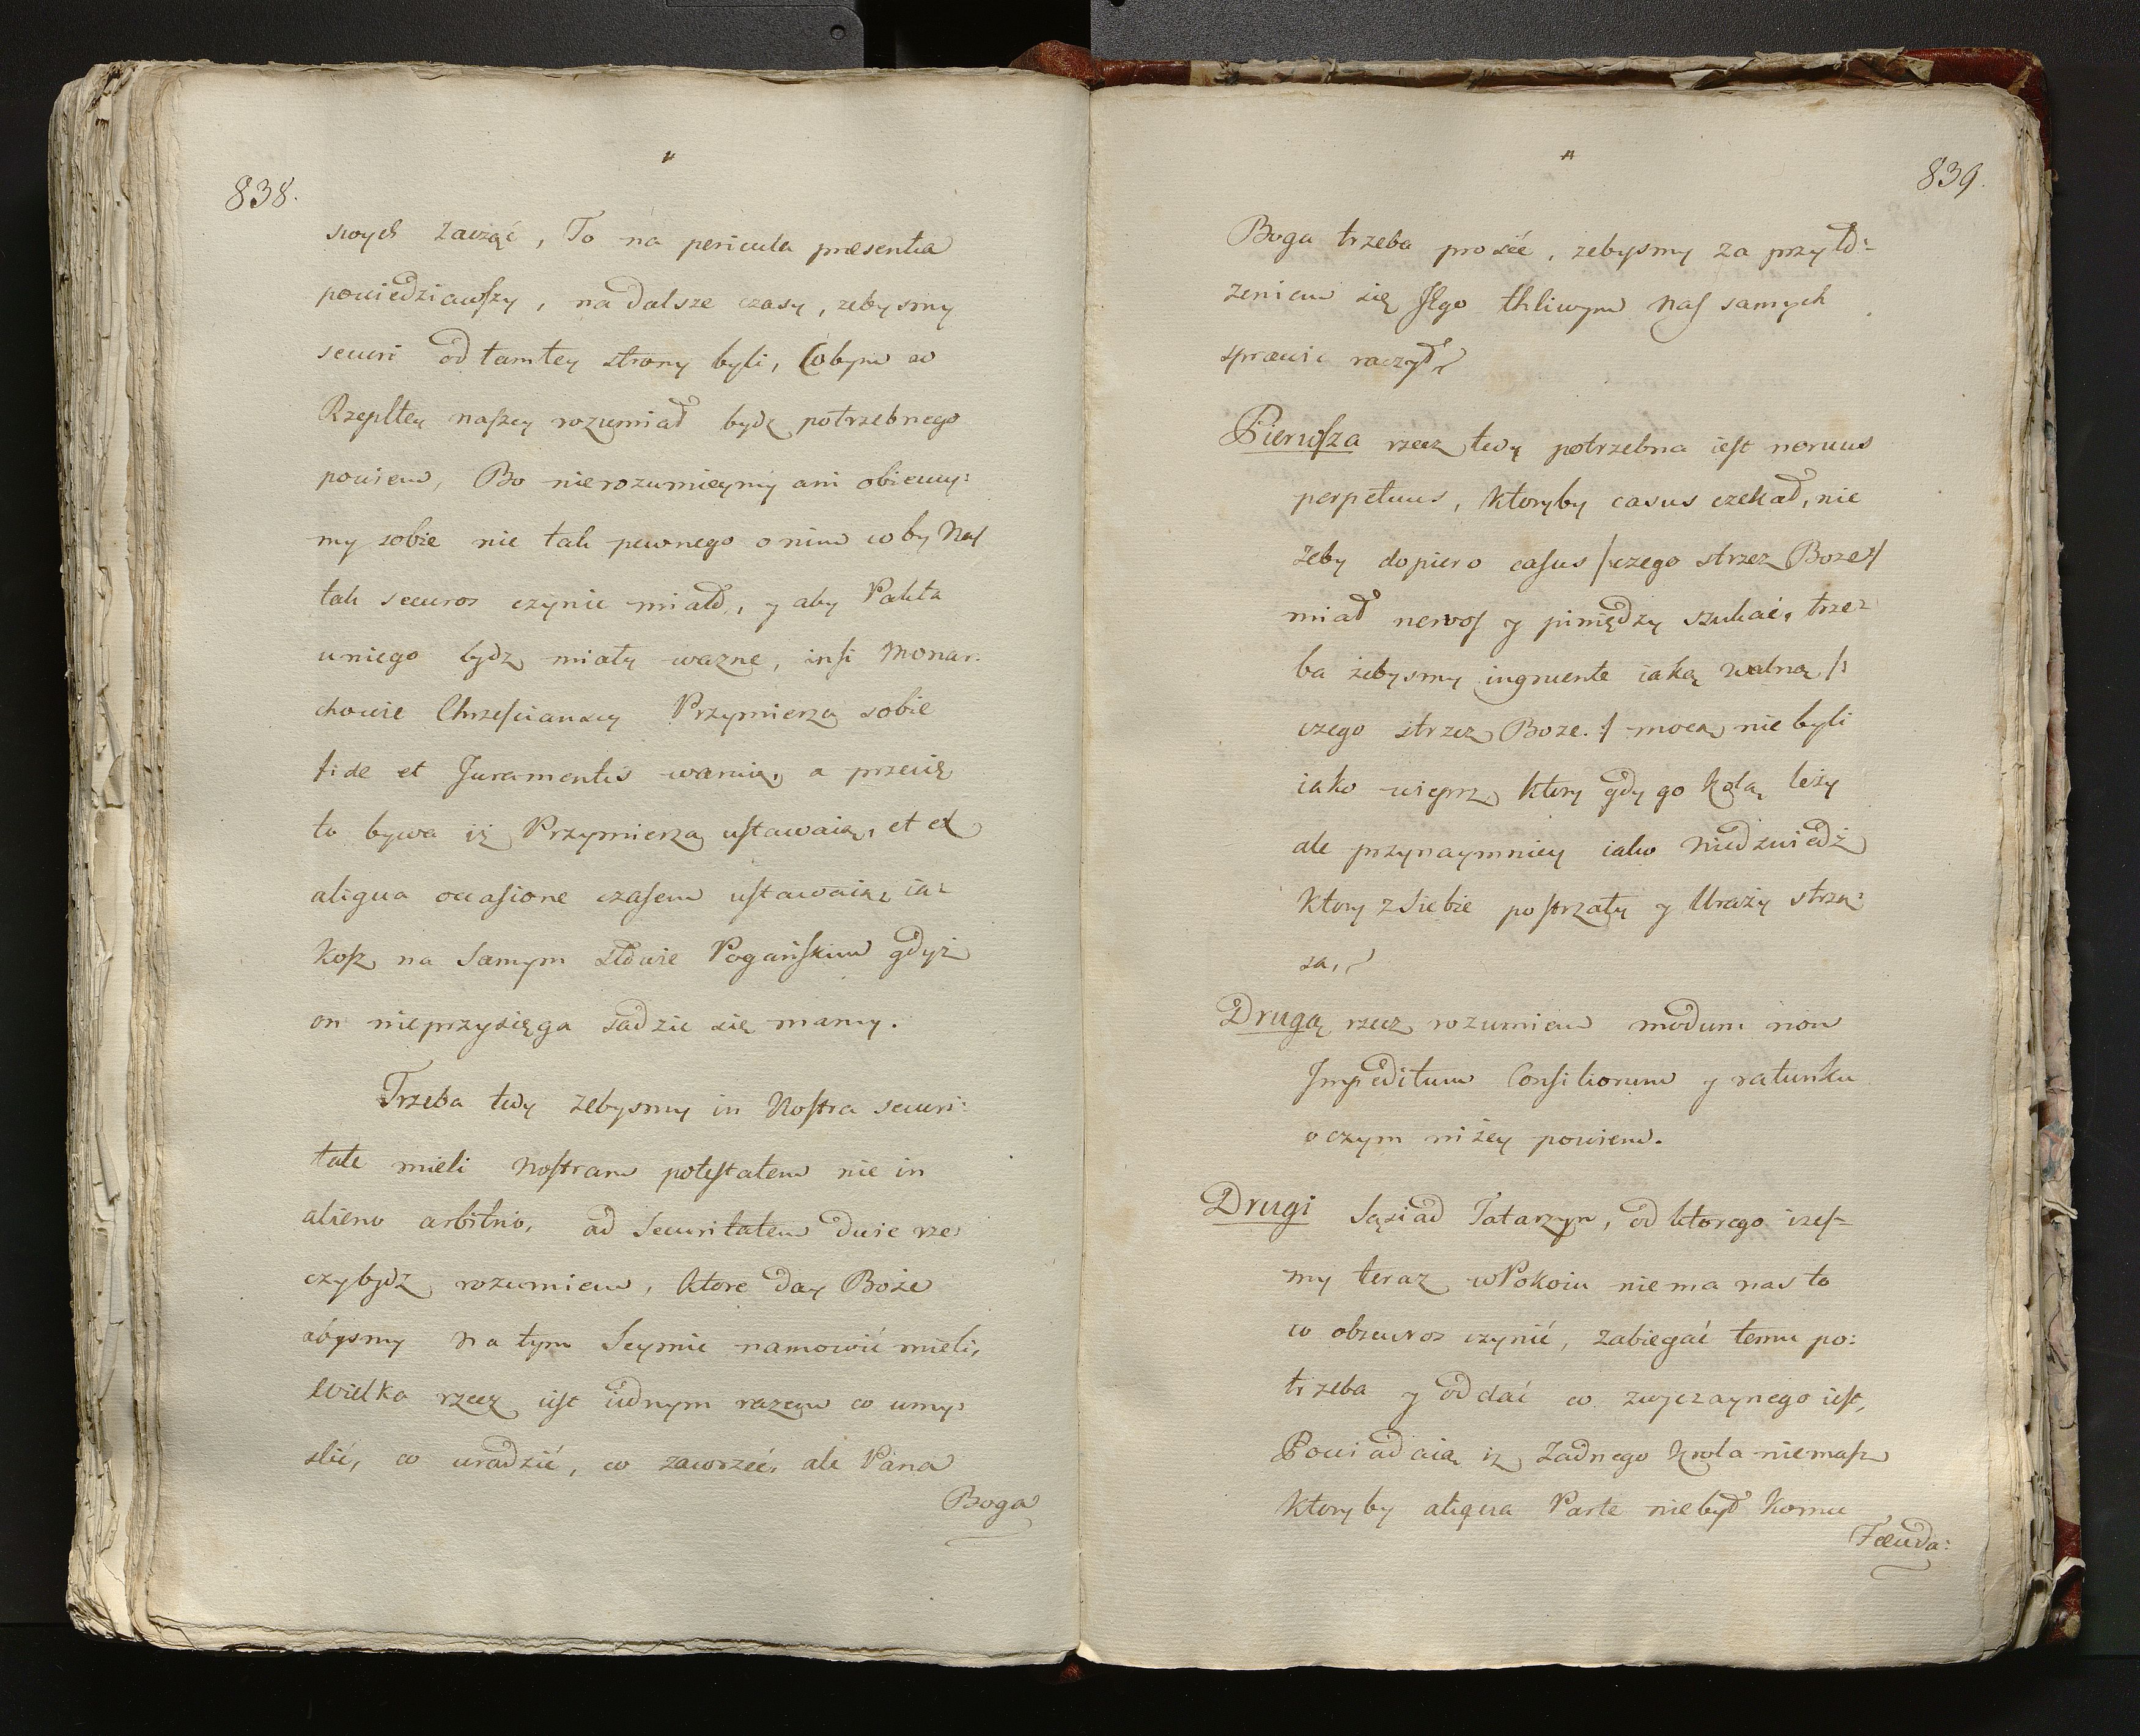 838.
swych zacząć, To na pericula præsentia
powiedziawszy, na dalsze czasy, zebysmy
securi od tamtey strony byli, Cobym w
Rzepltey naszey rozumiał bydź potrzebnego
powiem, Bo nierozumieymy ani obiecuy:
my sobie nic tak pewnego o nim coby Nas
tak securos czynic miało, y aby Pakta
u niego bydz miały wazne, insi Monar-
chowie Chrzesciansey Przymierza sobie
fide et Juramentis warnią, a przecię
to bywa iż Przymierza ustawaią, et ex
aliqua occasione czasem ustawaią, ia:
kosz na samym słowie Pogańskim gdyż
on nieprzysięga sadzic się mamy.
Trzeba tedy zebysmy in Nostra securi:
tate mieli Nostram potestatem nie in
alieno arbitrio, ad Securitatem dwie rze:
czy bydź rozumiem, ktore day Boże
abysmy na tym Seymie namowić mieli,
Wielka rzecz iest iednym razem co umy:
slić, co uradzić, co zaworzeć, ale Pana
Boga
839.
Boga trzeba prosić, zebysmy za przyło:
zeniem się Jego tkliwym Nas samych
sprawic raczył
Pierwsza rzecz tedy potrzebna iest nervus
perpetuus, ktoryby casus czekał, nie
żeby dopiero casus /:czego strzez Boze:/
miał nervos y pimiędzy szukać, trze:
ba żebysmy ingruente iaką walną /:
czego strzez Boze.:/ mocą nie byli
iako wieprz ktory gdy go kolą leży
ale przynaymniey iako Niedzwiedź
Ktory z siebie postrzały y Urazy strzą:
sa,
Drugą rzecz rozumiem modum non
Impeditum Consiliorum y ratunku
o czym niżey powiem.
Drugi Sąsiad Tatarzyn, od ktorego izes-
my teraz w Pokoiu nie ma nas to
co obscuros czynić, zabiegać temu po:
trzeba y oddać co zwyczaynego iest,
Powiadaią iż Zadnego Krola niemasz
ktoryby aliqua Parte nie był komu
Feuda: